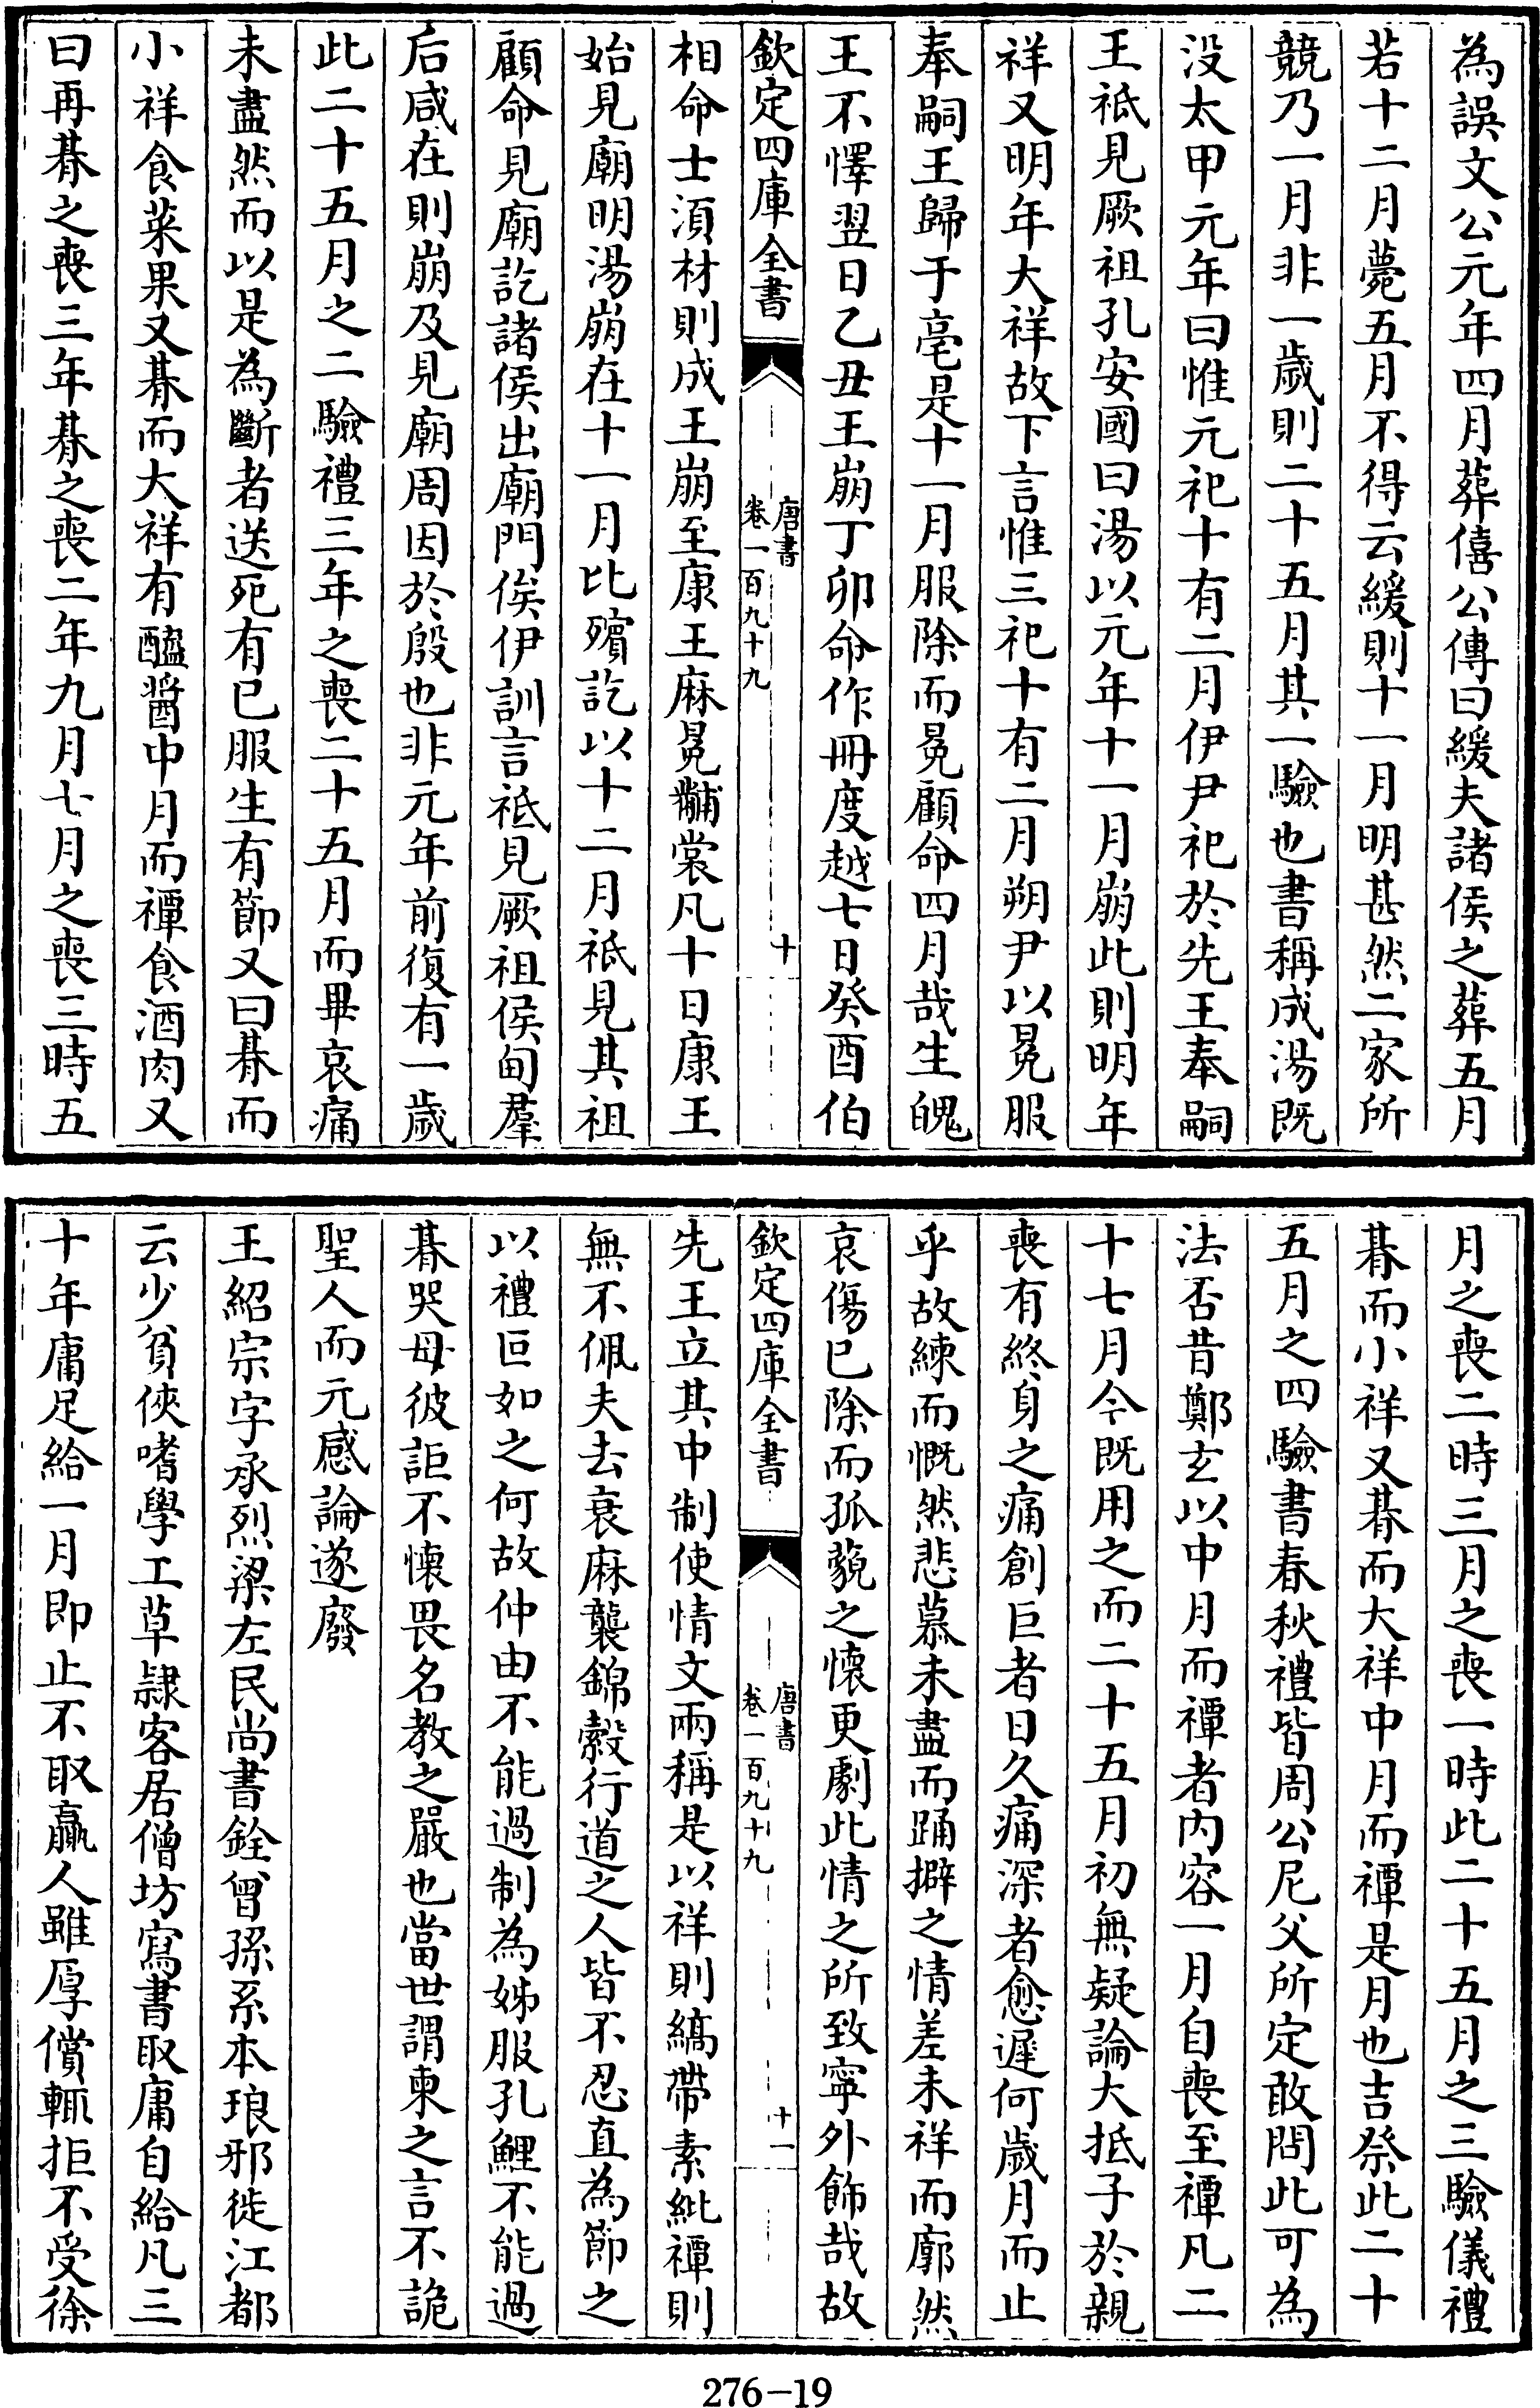 為誤文公元年四月葬僖公傳曰緩夫諸侯之葬五月
若十二月薨五月不得云緩則十一月明甚然二家所
競乃一月非一歲則二十五月其一驗也書稱成湯既
没太甲元年曰惟元祀十有二月伊尹祀於先王奉嗣
王祗見厥祖孔安國曰湯以元年十一月崩此則明年
祥又明年大祥故下言惟三祀十有二月朔尹以冕服
奉嗣王歸于亳是十一月服除而冕顧命四月哉生魄
王不懌翌日乙丑王崩丁卯命作冊度越七日癸酉伯
欽定四庫全書
唐書
卷一百九十九
十
相命士湏材則成王崩至康王麻冕黼裳凡十日康王
始見廟明湯崩在十一月比殯訖以十二月祗見其祖
顧命見廟訖諸侯出廟門俟伊訓言祗見厥祖侯甸羣
后咸在則崩及見廟周因於殷也非元年前復有一歲
此二十五月之二驗禮三年之喪二十五月而畢哀痛
未盡然而以是為斷者送死有已服生有節又曰朞而
小祥食菜果又朞而大祥有醯醬中月而禫食酒肉又
曰再朞之喪三年朞之喪二年九月七月之喪三時五
月之喪二時三月之喪一時此二十五月之三驗儀禮
朞而小祥又朞而大祥中月而禫是月也吉祭此二十
五月之四驗書春秋禮皆周公尼父所定敢問此可為
法否昔鄭玄以中月而禫者内容一月自喪至禫凡二
十七月今既用之而二十五月初無疑論大抵子於親
喪有終身之痛創巨者日久痛深者愈遲何歲月而止
乎故練而慨然悲慕未盡而踊擗之情差未祥而廓然
哀傷已除而孤藐之懷更劇此情之所致寧外飾哉故
欽定四庫全書
唐書
卷一百九十九
十一
先王立其中制使情文兩稱是以祥則縞帶素紕禫則
無不佩夫去衰麻襲錦縠行道之人皆不忍直為節之
以禮叵如之何故仲由不能過制為姊服孔鯉不能過
朞哭母彼詎不懷畏名教之嚴也當世謂柬之言不詭
聖人而元感論遂廢
王紹宗字承烈梁左民尚書銓曾孫系本琅邪徙江都
云少貧俠嗜學工草隸客居僧坊寫書取庸自給凡三
十年庸足給一月即止不取贏人雖厚償輒拒不受徐
276-19